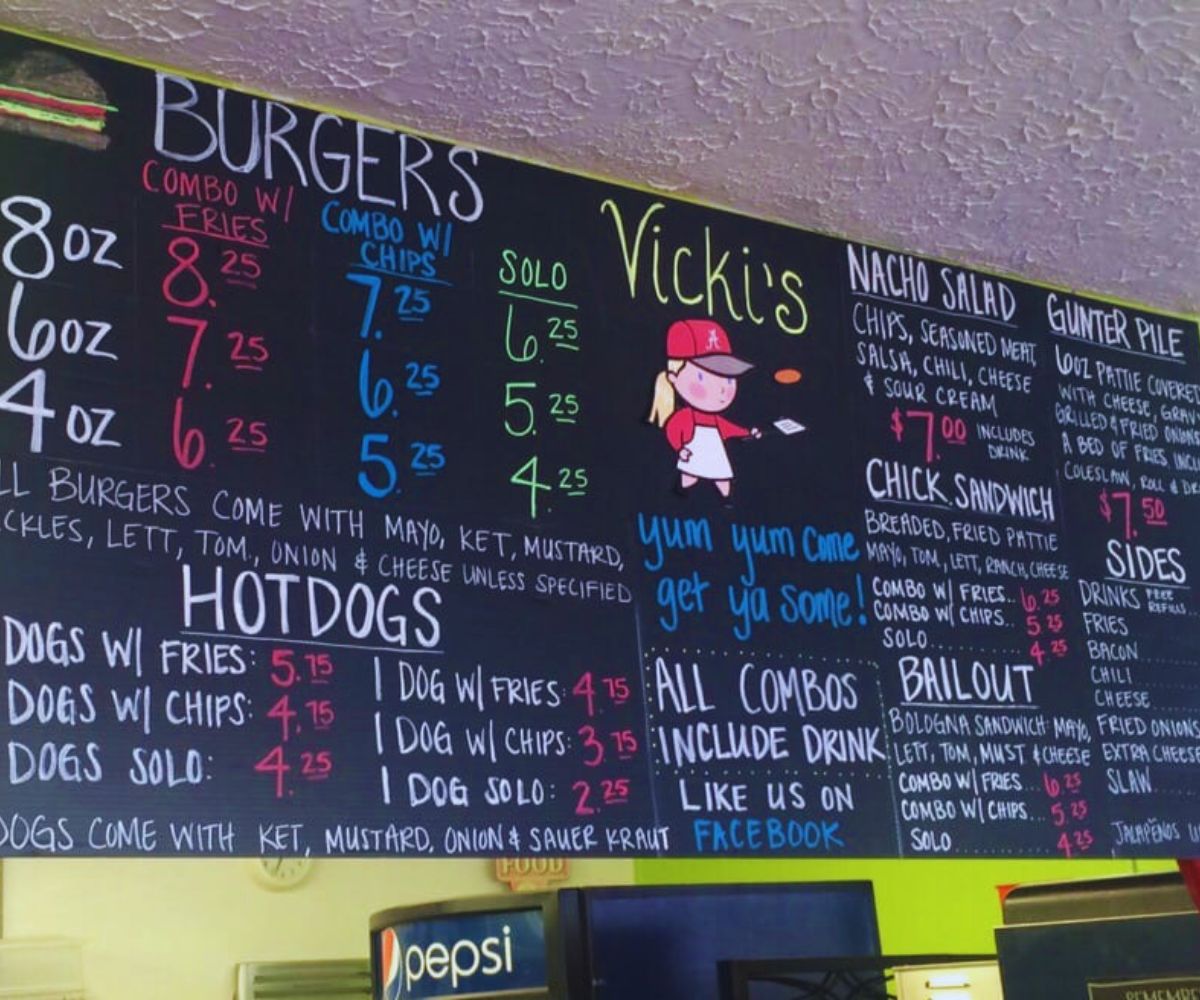 BURGERS
COMBO W/
FRIES
COMBO W/
CHIPS
SOLO
8 OZ 8.25 7.25 6.25
6 OZ 7.25 6.25 5.25
4 OZ 6.25 5.25 4.25
LL BURGERS COME WITH MAYO, KET, MUSTARD,
CKLES, LETT, TOM., ONION & CHEESE UNLESS SPECIFIED
HOTDOGS
DOGS W/ FRIES: 5.75
DOGS W/ CHIPS: 4.75
DOGS SOLO: 4.25
1 DOG W/ FRIES: 4.75
1 DOG W/ CHIPS: 3.75
1 DOG SOLO: 2.25
DOGS COME WITH KET, MUSTARD, ONION & SAUER KRAUT
Vicki's
A
yum yum come
get ya some!
ALL COMBOS
INCLUDE DRINK
LIKE US ON
FACEBOOK
NACHO SALAD
CHIPS, SEASONED MEAT,
SALSA, CHILI, CHEESE
& SOUR CREAM
$7.00 INCLUDES
DRINK
CHICK. SANDWICH
BREADED, FRIED PATTIE
MAYO, TOM, LETT, RANCH, CHEESE
COMBO W/ FRIES.. 6.25
COMBO W/ CHIPS.. 5.25
SOLO........ 4.25
BAILOUT
BOLOGNA SANDWICH: MAYO,
LETT, TOM, MUST & CHEESE
COMBO W/ FRIES... 6.25
COMBO W/ CHIPS... 5.25
SOLO........... 4.25
GUNTER PILE
6OZ PATTIE COVERED
WITH CHEESE, GRAV
GRILLED & FRIED ONIONS
A BED OF FRIES INCLU
COLESLAW, ROLL & DR
$7.50
SIDES
DRINKS FREE
REFILLS
FRIES
BACON
CHILI
CHEESE
FRIED ONIONS
EXTRA CHEESE
SLAW
JALAPEÑOS
FOOD
pepsi
REMEMBE